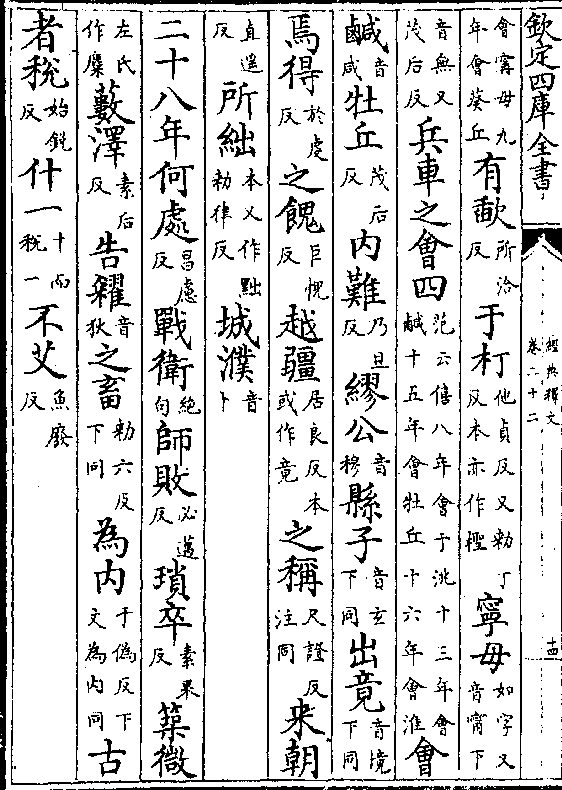 欽定四庫全書
經典釋文
卷二十二
十四
會甯毋九年會葵丘有歃所洽反于朾他貞反又勑丁反本亦作檉寧毋如字又音甯下
音無又茂后反兵車之會四范云僖八年會于洮十三年會鹹十五年會牡丘十六年會淮會
鹹音咸牡丘茂后反内難乃旦反繆公音穆縣子音玄下同出竟音境下同
焉得於虔反之餽巨愧反越疆居良反本或作竟之稱尺證反注同来朝
直遥反所絀本又作黜勑律反城濮音卜
二十八年何處昌慮反戰衛絶句師敗必邁反瑣卒素果反築微
左氏作麋藪澤素后反告糴音狄之畜勑六反下同為内于偽反下文為内同古
者稅始銳反什一十而稅一不艾魚廢反